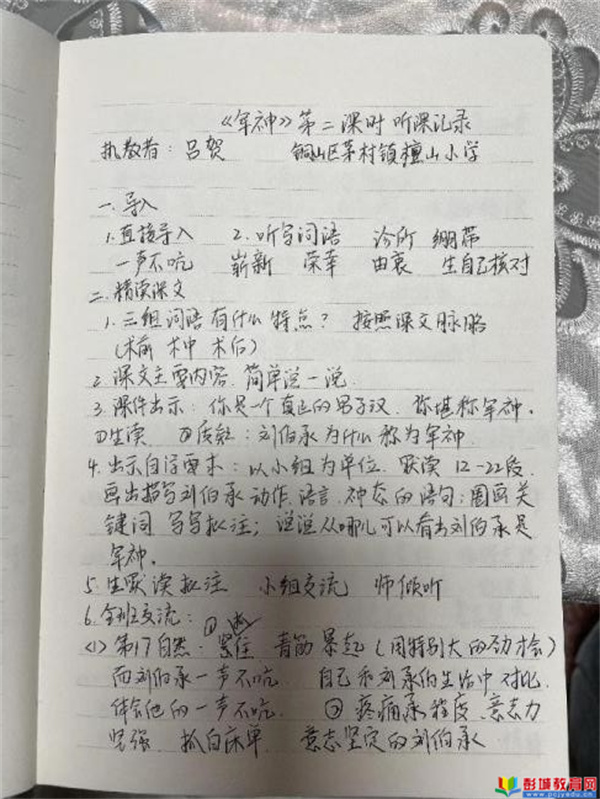 《军神》第二课时 听课记录
执教者：吕贺 铜山区茅村镇檀山小学
一.导入
1.直接导入 2.听写词语 诊所 绷带
一声不吭 崭新 荣幸 由衷 生自己核对
二.精读课文
1.三组词语有什么特点？ 按照课文脉胳
(术前 术中 术后)
2.课文主要内容.简单说一说.
3.课件出示：你是一个真正的男子汉.你堪称军神.
①生读 ②质疑：刘伯承为什么称为军神.
4.出示自学要求：以小组为单位.默读12-22段.
画出描写刘伯承动作.语言.神态的语句;圈画关
键词 写写批注；说说从哪儿可以看出刘伯承是
军神.
5.生默读批注 小组交流 师倾听
6.全班交流：①
(1)第17自然：紧住 青筋暴起(用特别大的劲才会)
而刘伯承一声不吭. 自己和刘承的生活中对比.
体会他的一声不吭. ②疼痛承程度.意志力
坚强 抓白床单 意志坚定的刘伯承
彭城教育网
www.pcjyedu.cn